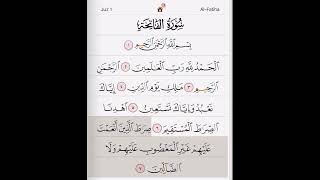 Juz 1
Al-Fatiha
سُورَةُ الْفَاتِحَةِ
بِسْمِ اللَّهِ الرَّحْمَٰنِ الرَّحِيمِ ١
الْحَمْدُ لِلَّهِ رَبِّ الْعَالَمِينَ ٢ الرَّحْمَٰنِ
الرَّحِيمِ ٣ مَالِكِ يَوْمِ الدِّينِ ٤ إِيَّاكَ
نَعْبُدُ وَإِيَّاكَ نَسْتَعِينُ ٥ اهْدِنَا
الصِّرَاطَ الْمُسْتَقِيمَ ٦ صِرَاطَ الَّذِينَ أَنْعَمْتَ
عَلَيْهِمْ غَيْرِ الْمَغْضُوبِ عَلَيْهِمْ وَلَا
الضَّالِّينَ ٧